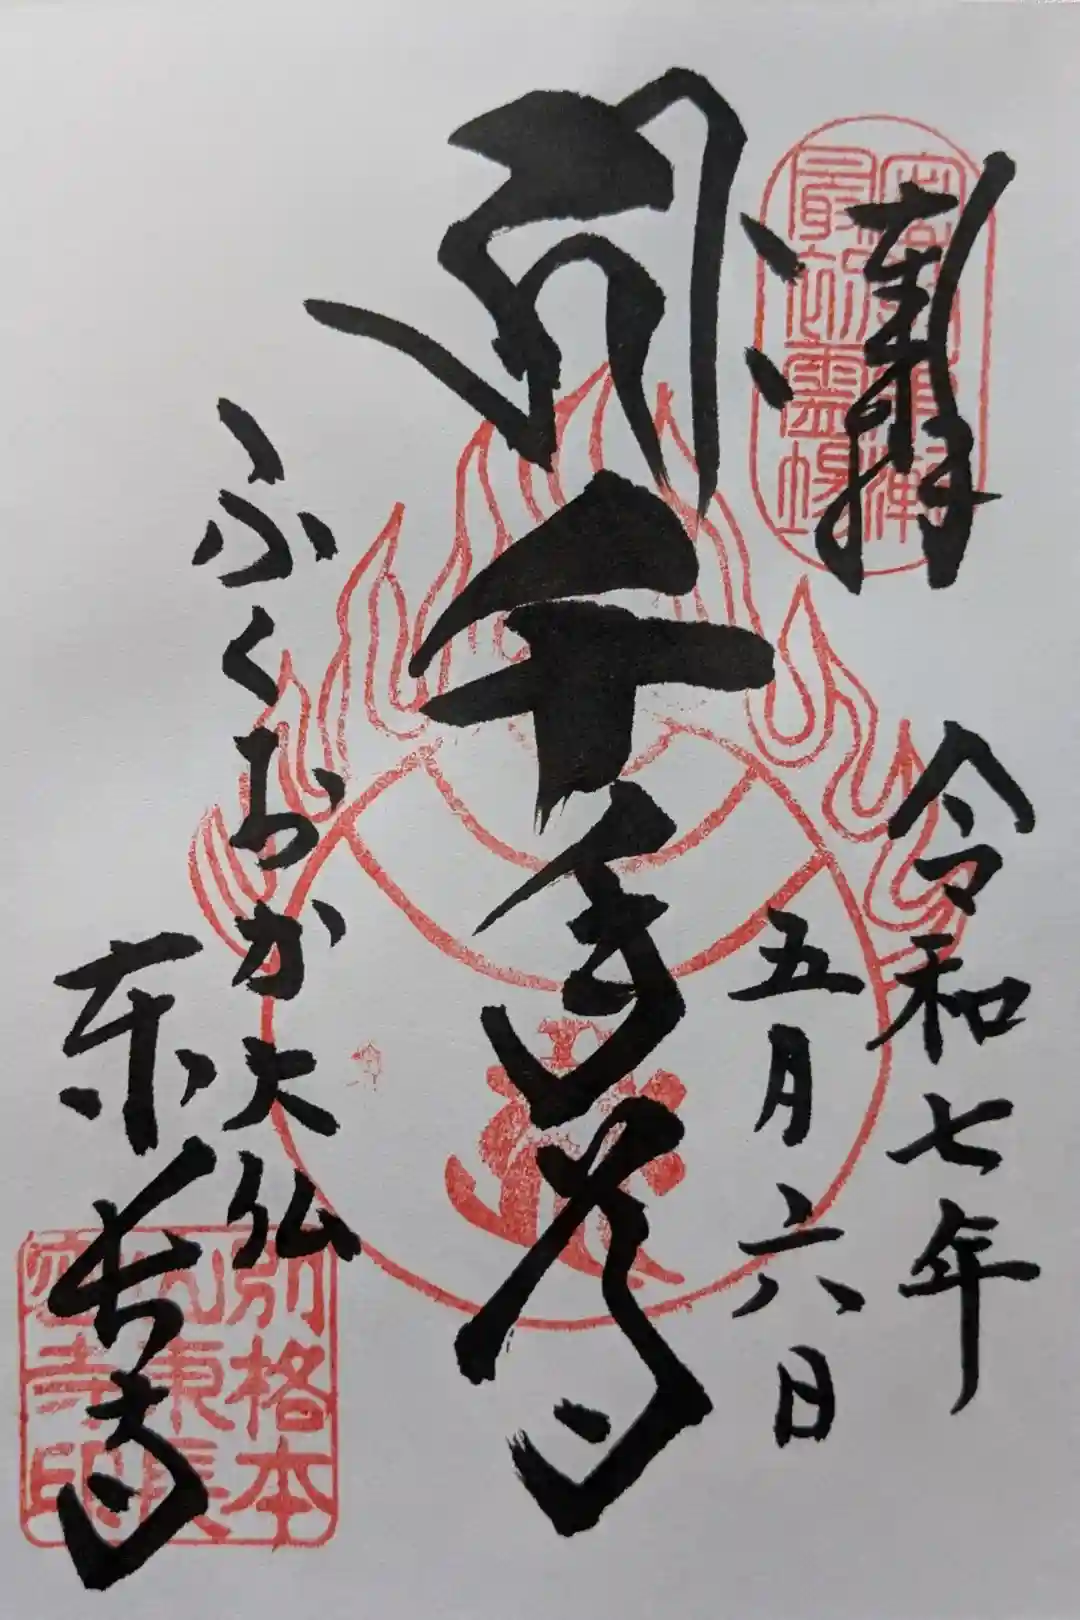 奉拝
令和七年
五月六日
千手尊
ふくおか大仏
東長寺
最初霊場
別格本
山東長
密寺印